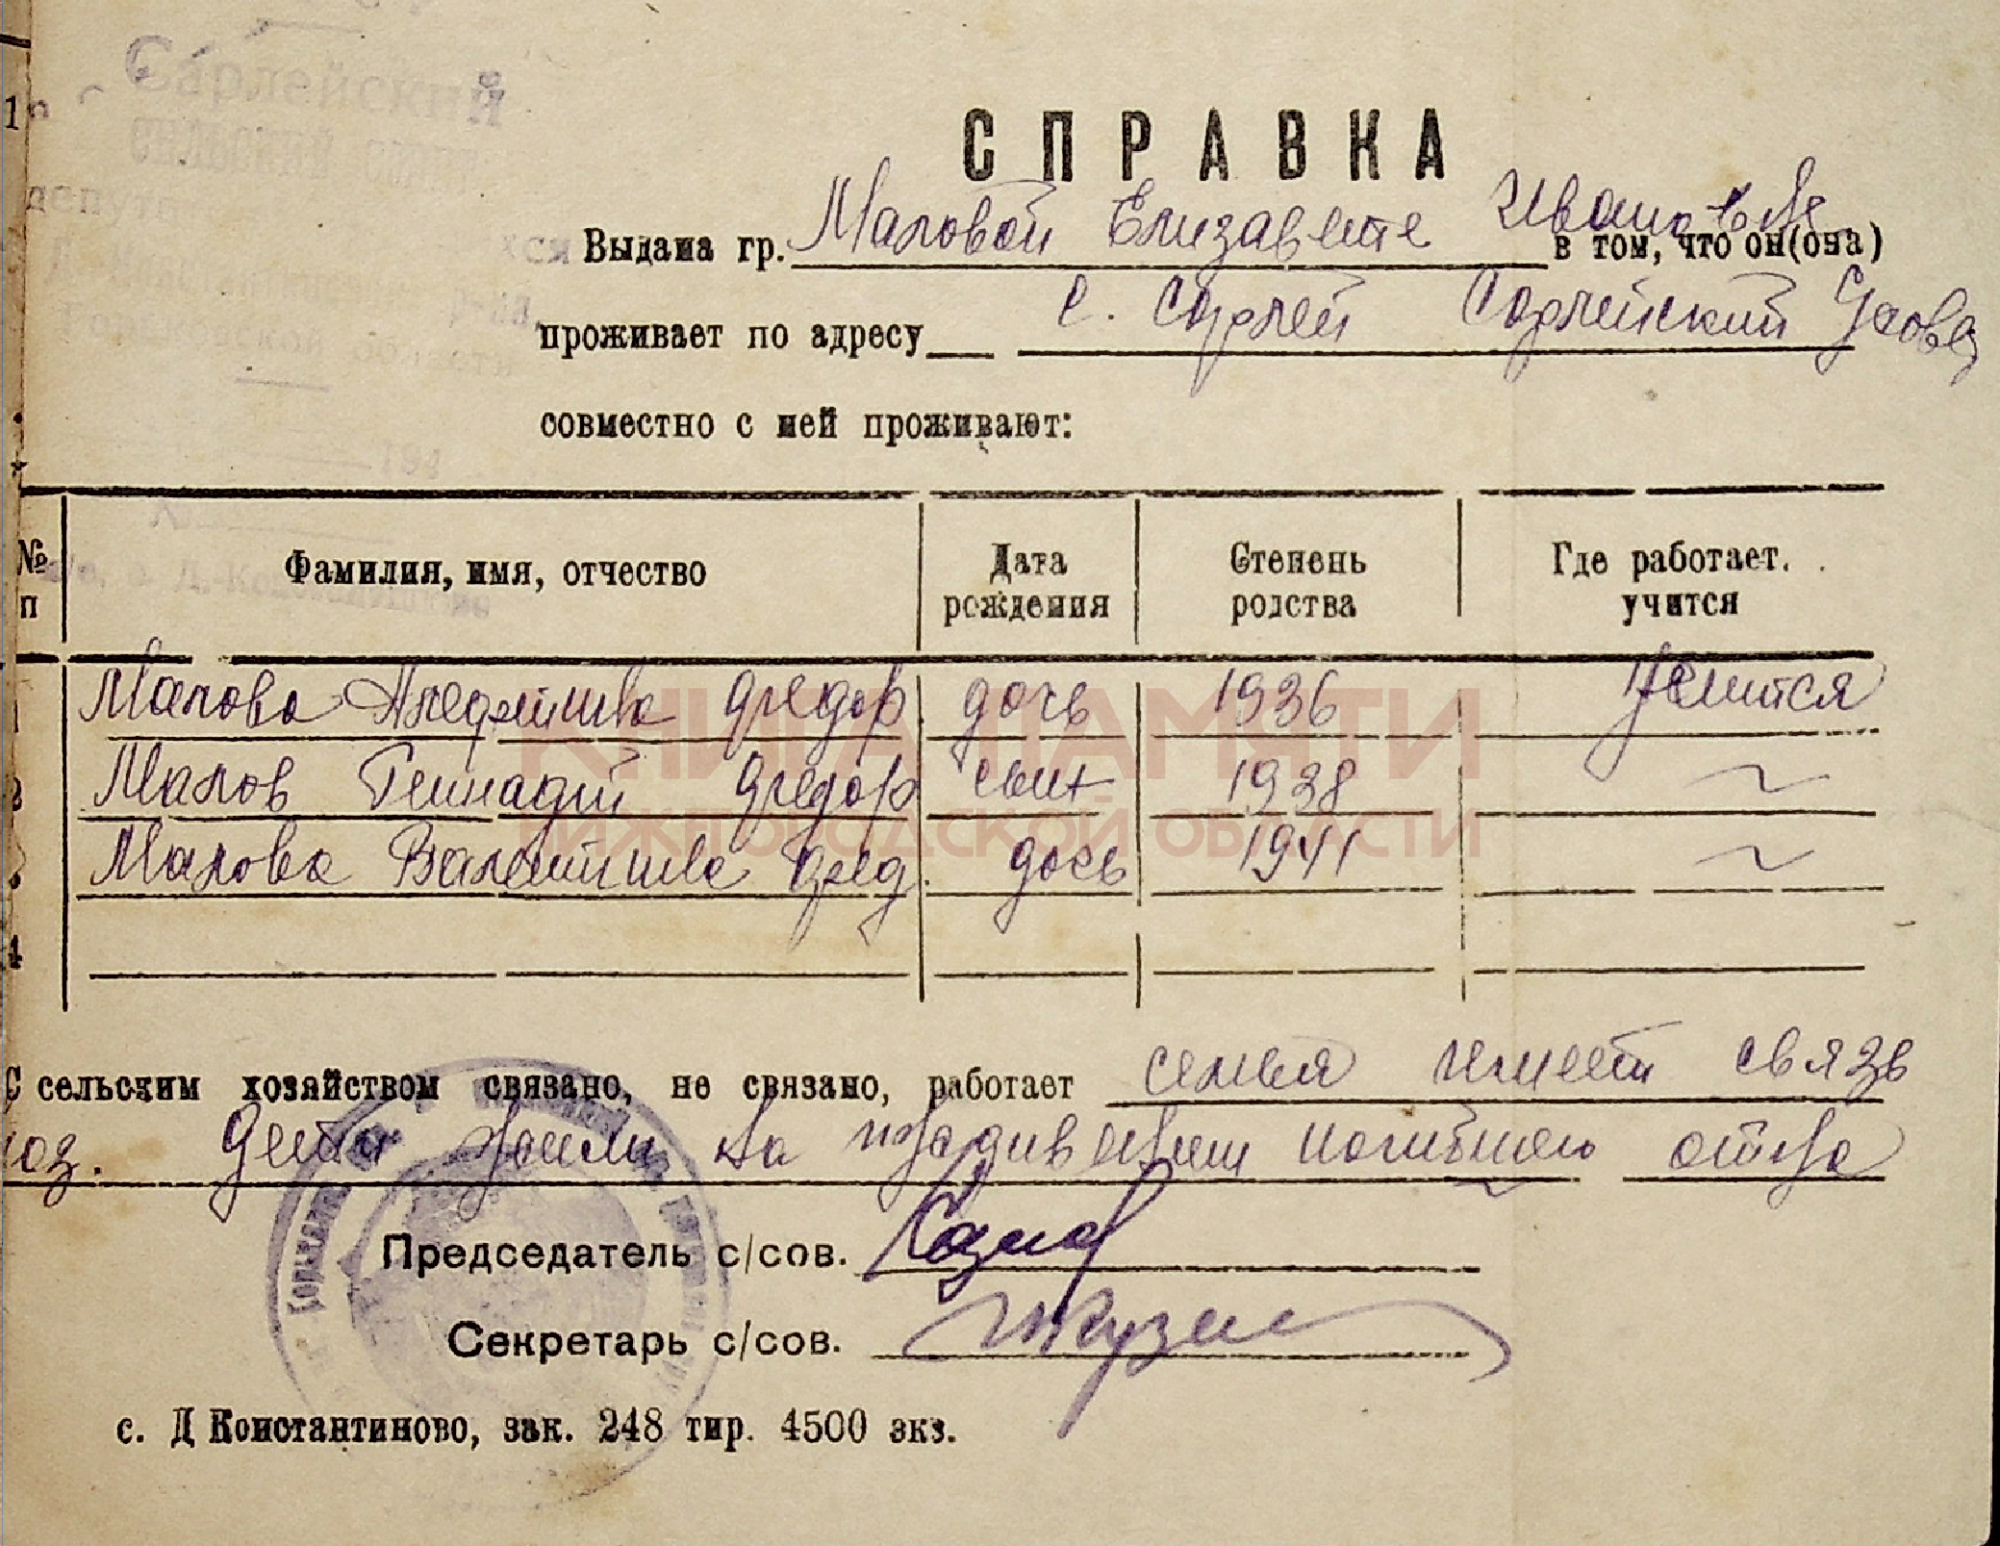 Сарлейский
сельский совет
Горьковской области
194
С П Р А В К А
Выдана гр. Маловой Елизавете Ивановне в том, что он(она)
проживает по адресу с. Сарлей Сарлейский
совместно с ней проживают:
№ п Фамилия, имя, отчество Дата рождения Степень родства Где работает. учится
1 Малова Альфретина Федор. дочь 1936 Учится
2 Малов Геннадий Федор сын 1938 ~
3 Малова Валентина Фед. дочь 1941 ~
4
С сельским хозяйством связано, не связано, работает семья имеет связь
хоз. Дети были на иждивении погибшего отца
Председатель с/сов.
Секретарь с/сов.
с. Д Константиново, зак. 248 тир. 4500 экз.
КНИГА ПАМЯТИ
НИЖЕГОРОДСКОЙ ОБЛАСТИ